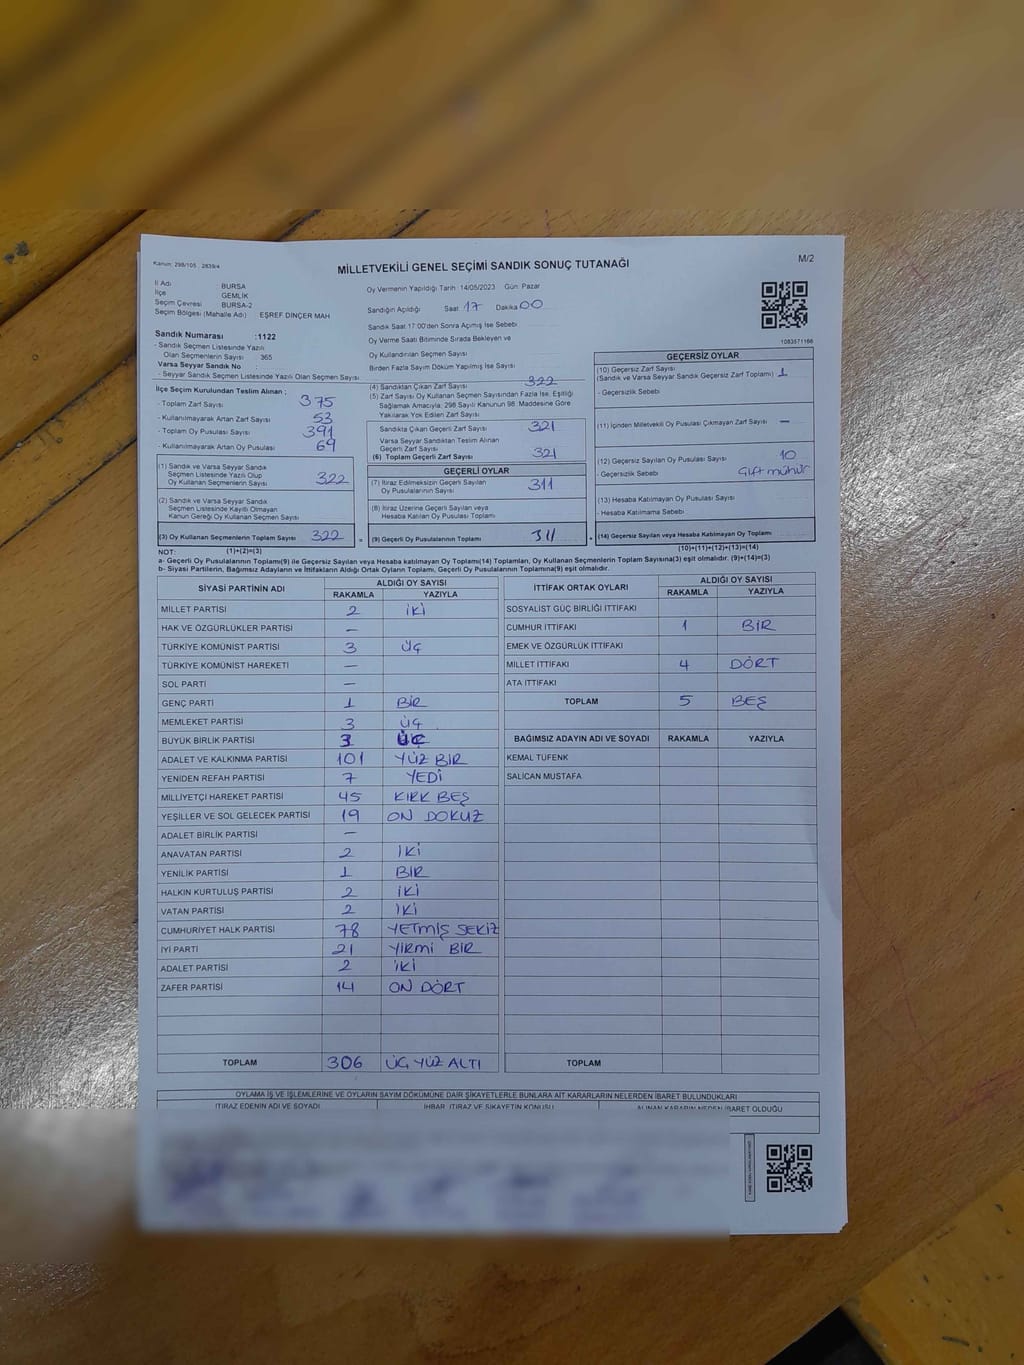 Kanun: 298/105 , 2839/4
MİLLETVEKİLİ GENEL SEÇİMİ SANDIK SONUÇ TUTANAĞI
M/2
İl Adı BURSA
İlçe GEMLİK
Seçim Çevresi BURSA-2
Seçim Bölgesi (Mahalle Adı) EŞREF DİNÇER MAH
Sandık Numarası :1122
- Sandık Seçmen Listesinde Yazılı
Olan Seçmenlerin Sayısı 365
Varsa Seyyar Sandık No
- Seyyar Sandık Seçmen Listesinde Yazılı Olan Seçmen Sayısı
Oy Vermenin Yapıldığı Tarih 14/05/2023 Gün Pazar
Sandığın Açıldığı Saat 17 Dakika 00
Sandık Saat 17:00'den Sonra Açılmış İse Sebebi
Oy Verme Saati Bitiminde Sırada Bekleyen ve
Oy Kullandırılan Seçmen Sayısı
Birden Fazla Sayım Döküm Yapılmış İse Sayısı
1083571166
İlçe Seçim Kurulundan Teslim Alınan :
- Toplam Zarf Sayısı 375
- Kullanılmayarak Artan Zarf Sayısı 53
- Toplam Oy Pusulası Sayısı 391
- Kullanılmayarak Artan Oy Pusulası 69
(1) Sandık ve Varsa Seyyar Sandık
Seçmen Listesinde Yazılı Olup
Oy Kullanan Seçmenlerin Sayısı 322
(2) Sandık ve Varsa Seyyar Sandık
Seçmen Listesinde Kayıtlı Olmayan
Kanun Gereği Oy Kullanan Seçmen Sayısı
(3) Oy Kullanan Seçmenlerin Toplam Sayısı 322 =
(4) Sandıktan Çıkan Zarf Sayısı 322
(5) Zarf Sayısı Oy Kullanan Seçmen Sayısından Fazla İse, Eşitliği
Sağlamak Amacıyla; 298 Sayılı Kanunun 98. Maddesine Göre
Yakılarak Yok Edilen Zarf Sayısı
Sandıkta Çıkan Geçerli Zarf Sayısı 321
Varsa Seyyar Sandıktan Teslim Alınan
Geçerli Zarf Sayısı
(6) Toplam Geçerli Zarf Sayısı 321
GEÇERLİ OYLAR
(7) İtiraz Edilmeksizin Geçerli Sayılan
Oy Pusulalarının Sayısı 311
(8) İtiraz Üzerine Geçerli Sayılan veya
Hesaba Katılan Oy Pusulası Toplamı
(9) Geçerli Oy Pusulalarının Toplamı 311 +
GEÇERSİZ OYLAR
(10) Geçersiz Zarf Sayısı
(Sandık ve Varsa Seyyar Sandık Geçersiz Zarf Toplamı) 1
- Geçersizlik Sebebi
(11) İçinden Milletvekili Oy Pusulası Çıkmayan Zarf Sayısı —
(12) Geçersiz Sayılan Oy Pusulası Sayısı 10
Geçersizlik Sebebi Çift mühür
(13) Hesaba Katılmayan Oy Pusulası Sayısı
- Hesaba Katılmama Sebebi
(14) Geçersiz Sayılan veya Hesaba Katılmayan Oy Toplamı
NOT: (1)+(2)=(3) (10)+(11)+(12)+(13)=(14)
a- Geçerli Oy Pusulalarının Toplamı(9) ile Geçersiz Sayılan veya Hesaba katılmayan Oy Toplamı(14) Toplamları, Oy Kullanan Seçmenlerin Toplam Sayısına(3) eşit olmalıdır. (9)+(14)=(3)
b- Siyasi Partilerin, Bağımsız Adayların ve İttifakların Aldığı Ortak Oyların Toplamı, Geçerli Oy Pusulalarının Toplamına(9) eşit olmalıdır.
SİYASİ PARTİNİN ADI ALDIĞI OY SAYISI
RAKAMLA YAZIYLA
MİLLET PARTİSİ 2 İKİ
HAK VE ÖZGÜRLÜKLER PARTİSİ —
TÜRKİYE KOMÜNİST PARTİSİ 3 ÜÇ
TÜRKİYE KOMÜNİST HAREKETİ —
SOL PARTİ —
GENÇ PARTİ 1 BİR
MEMLEKET PARTİSİ 3 ÜÇ
BÜYÜK BİRLİK PARTİSİ 3 ÜÇ
ADALET VE KALKINMA PARTİSİ 101 YÜZ BİR
YENİDEN REFAH PARTİSİ 7 YEDİ
MİLLİYETÇİ HAREKET PARTİSİ 45 KIRK BEŞ
YEŞİLLER VE SOL GELECEK PARTİSİ 19 ON DOKUZ
ADALET BİRLİK PARTİSİ —
ANAVATAN PARTİSİ 2 İKİ
YENİLİK PARTİSİ 1 BİR
HALKIN KURTULUŞ PARTİSİ 2 İKİ
VATAN PARTİSİ 2 İKİ
CUMHURİYET HALK PARTİSİ 78 YETMİŞ SEKİZ
İYİ PARTİ 21 YİRMİ BİR
ADALET PARTİSİ 2 İKİ
ZAFER PARTİSİ 14 ON DÖRT
TOPLAM 306 ÜÇ YÜZ ALTI
İTTİFAK ORTAK OYLARI ALDIĞI OY SAYISI
RAKAMLA YAZIYLA
SOSYALİST GÜÇ BİRLİĞİ İTTİFAKI
CUMHUR İTTİFAKI 1 BİR
EMEK VE ÖZGÜRLÜK İTTİFAKI
MİLLET İTTİFAKI 4 DÖRT
ATA İTTİFAKI
TOPLAM 5 BEŞ
BAĞIMSIZ ADAYIN ADI VE SOYADI RAKAMLA YAZIYLA
KEMAL TÜFENK
SALİCAN MUSTAFA
TOPLAM
OYLAMA İŞ VE İŞLEMLERİNE VE OYLARIN SAYIM DÖKÜMÜNE DAİR ŞİKAYETLERLE BUNLARA AİT KARARLARIN NELERDEN İBARET BULUNDUKLARI
İTİRAZ EDENİN ADI VE SOYADI İHBAR, İTİRAZ VE ŞİKAYETİN KONUSU ALINAN KARARIN NEDEN İBARET OLDUĞU